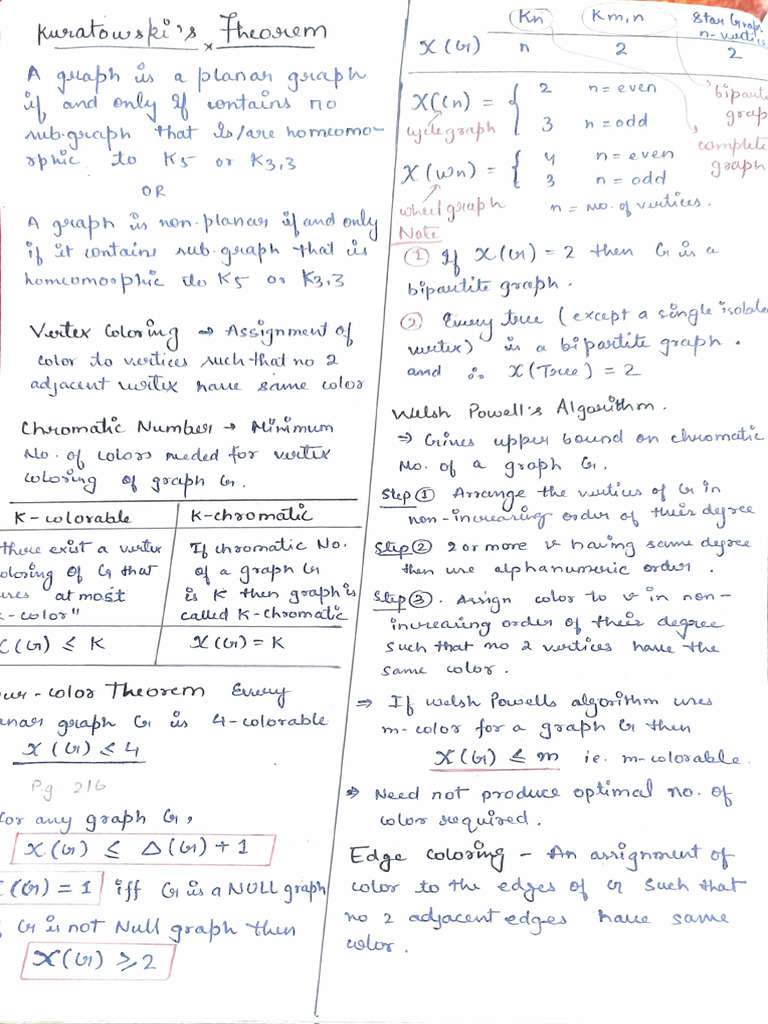 Kuratowski's Theorem
A graph is a planar graph
if and only if contains no
sub.graph that is/are homeomo-
rphic to K5 or K3,3
OR
A graph is non-planar if and only
if it contains sub-graph that is
homeomorphic to K5 or K3,3
Vertex Coloring → Assignment of
color to vertices such that no 2
adjacent vertex have same color
Chromatic Number → Minimum
No. of colors needed for vertex
coloring of graph G.
K-colorable K-chromatic
there exist a vertex If chromatic No.
coloring of G that of a graph G
uses at most is K then graph is
k-color" called K-chromatic
(G) ≤ K X(G) = K
our-color Theorem Every
lanar graph G is 4-colorable
X(G) ≤ 4
Pg. 216
for any graph G,
X(G) ≤ Δ(G) + 1
(G) = 1 iff G is a NULL graph
G is not Null graph then
X(G) ≥ 2
Kn Km,n Star Graph
n-vertic
X(G) n 2 2
X(Cn) = { 2 n = even
3 n = odd
cycle graph
bipartite
graph
complete
graph
X(Wn) = { 4 n = even
3 n = odd
wheel graph n = No. of vertices.
Note
① If X(G) = 2 then G is a
bipartite graph.
② Every tree (except a single isolated
vertex) is a bipartite graph.
and ∴ X(Tree) = 2
Welsh Powell's Algorithm.
⇒ Gives upper bound on chromatic
No. of a graph G.
Step ① Arrange the vertices of G in
non-increasing order of their degree
Step ② 2 or more v having same degree
then use alphanumeric order.
Step ③. Assign color to v in non-
increasing order of their degree
such that no 2 vertices have the
same color.
⇒ If Welsh Powells algorithm uses
m-color for a graph G then
X(G) ≤ m ie. m-colorable.
⇒ Need not produce optimal no. of
color required.
Edge Coloring - An assignment of
color to the edges of G such that
no 2 adjacent edges have same
color.